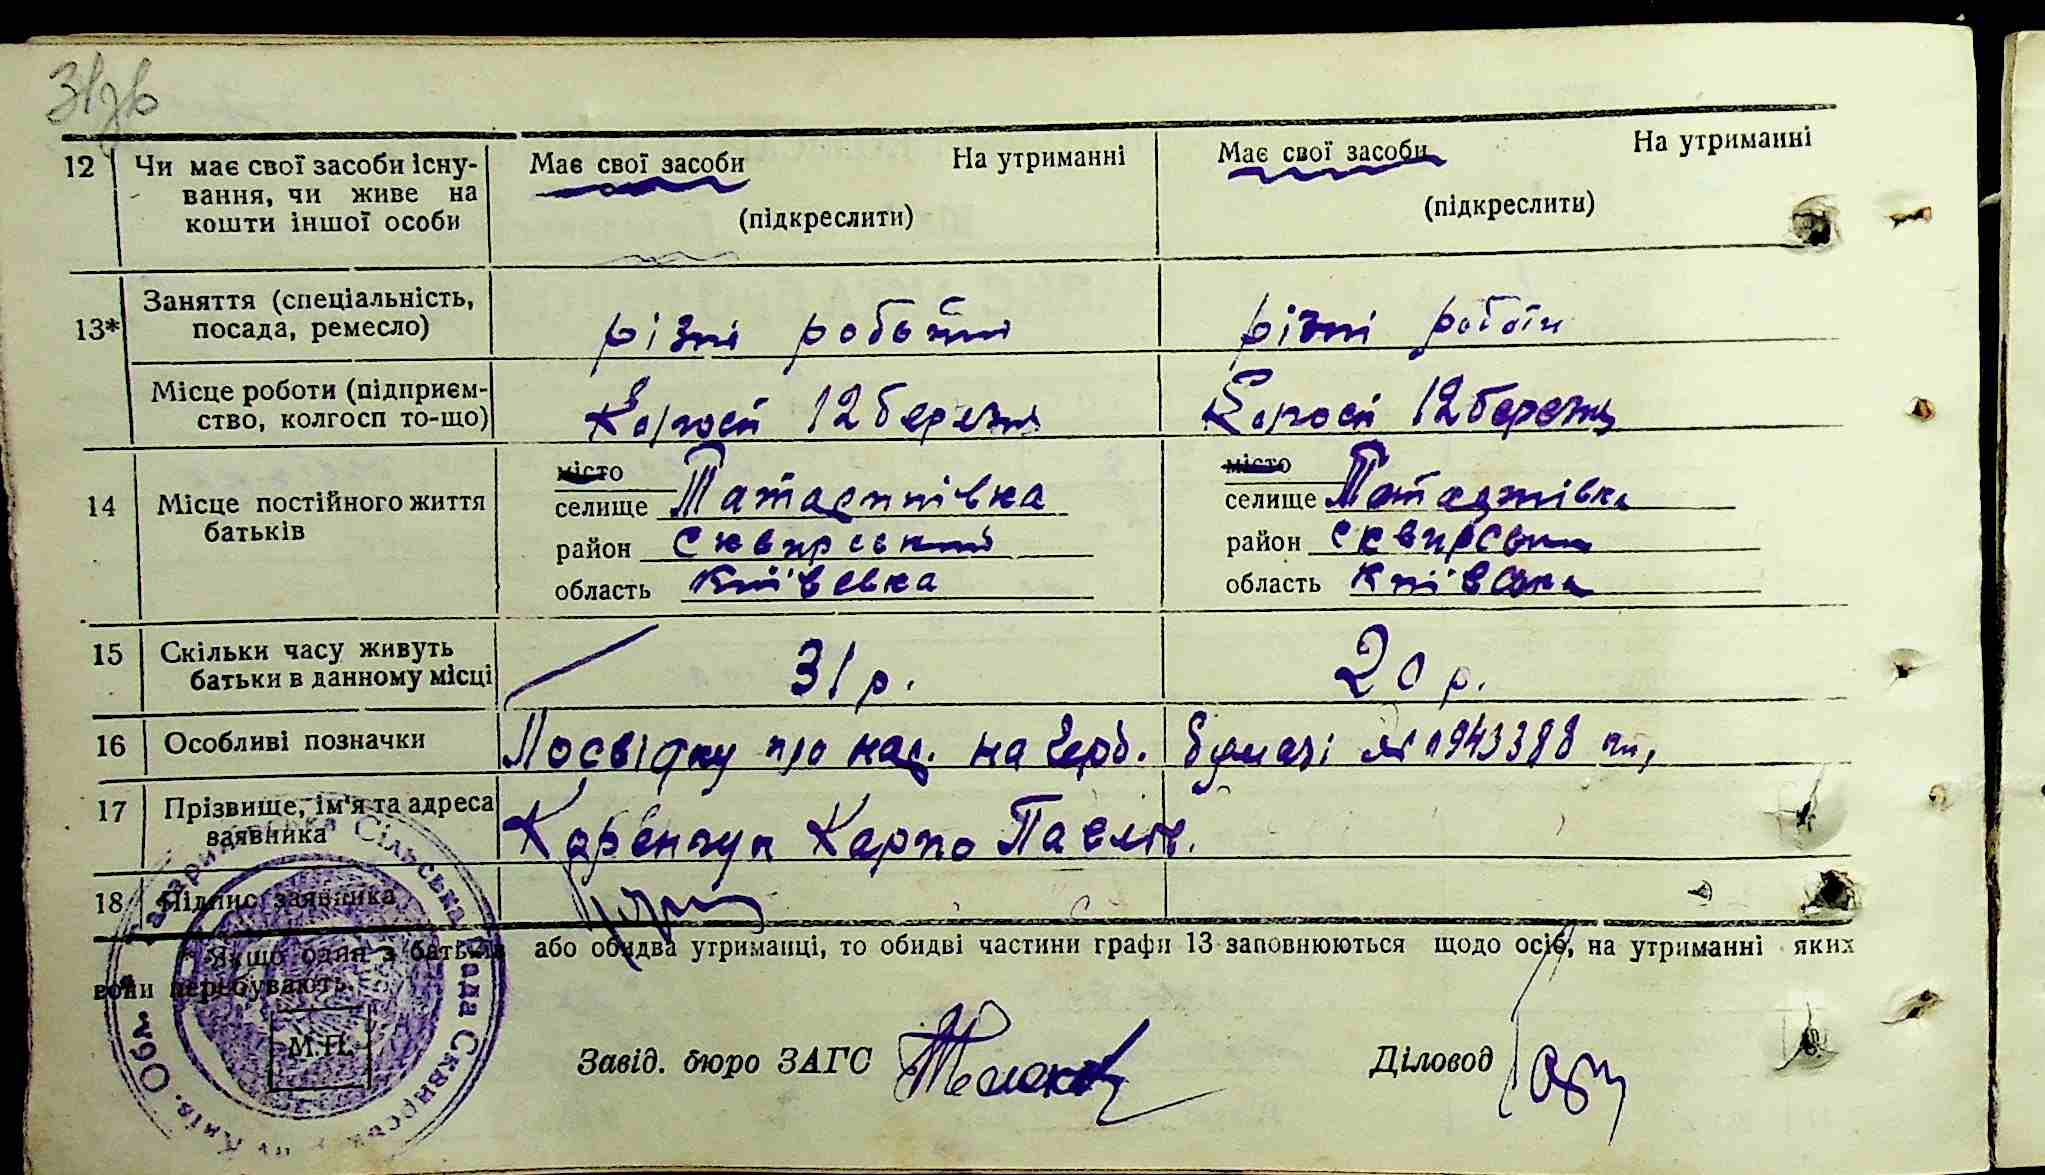 31зв
12 Чи має свої засоби існу- Має свої засоби На утриманні Має свої засоби На утриманні
вання, чи живе на
кошти іншої особи (підкреслити) (підкреслити)
13* Заняття (спеціальність,
посада, ремесло) різні роботи різні роботи
Місце роботи (підприєм-
ство, колгосп то-що) Колгосп 12 березня Колгосп 12 березня
місто місто
14 Місце постійного життя селище Татаринівка селище Татаринівка
батьків район Сквирський район Сквирський
область Київська область Київська
15 Скільки часу живуть
батьки в данному місці 31 р. 20 р.
16 Особливі позначки Посвідку про нар. на герб. бумазі № 943388
17 Прізвище, ім'я та адреса
заявника Карпо Павлов.
18 Підпис заявника
* Якщо один з батьків або обидва утриманці, то обидві частини графи 13 заповнюються щодо осіб, на утриманні яких
вони перебувають.
М.П. Завід. бюро ЗАГС Діловод
Сільська Рада Сквирськ Київ. Обл.